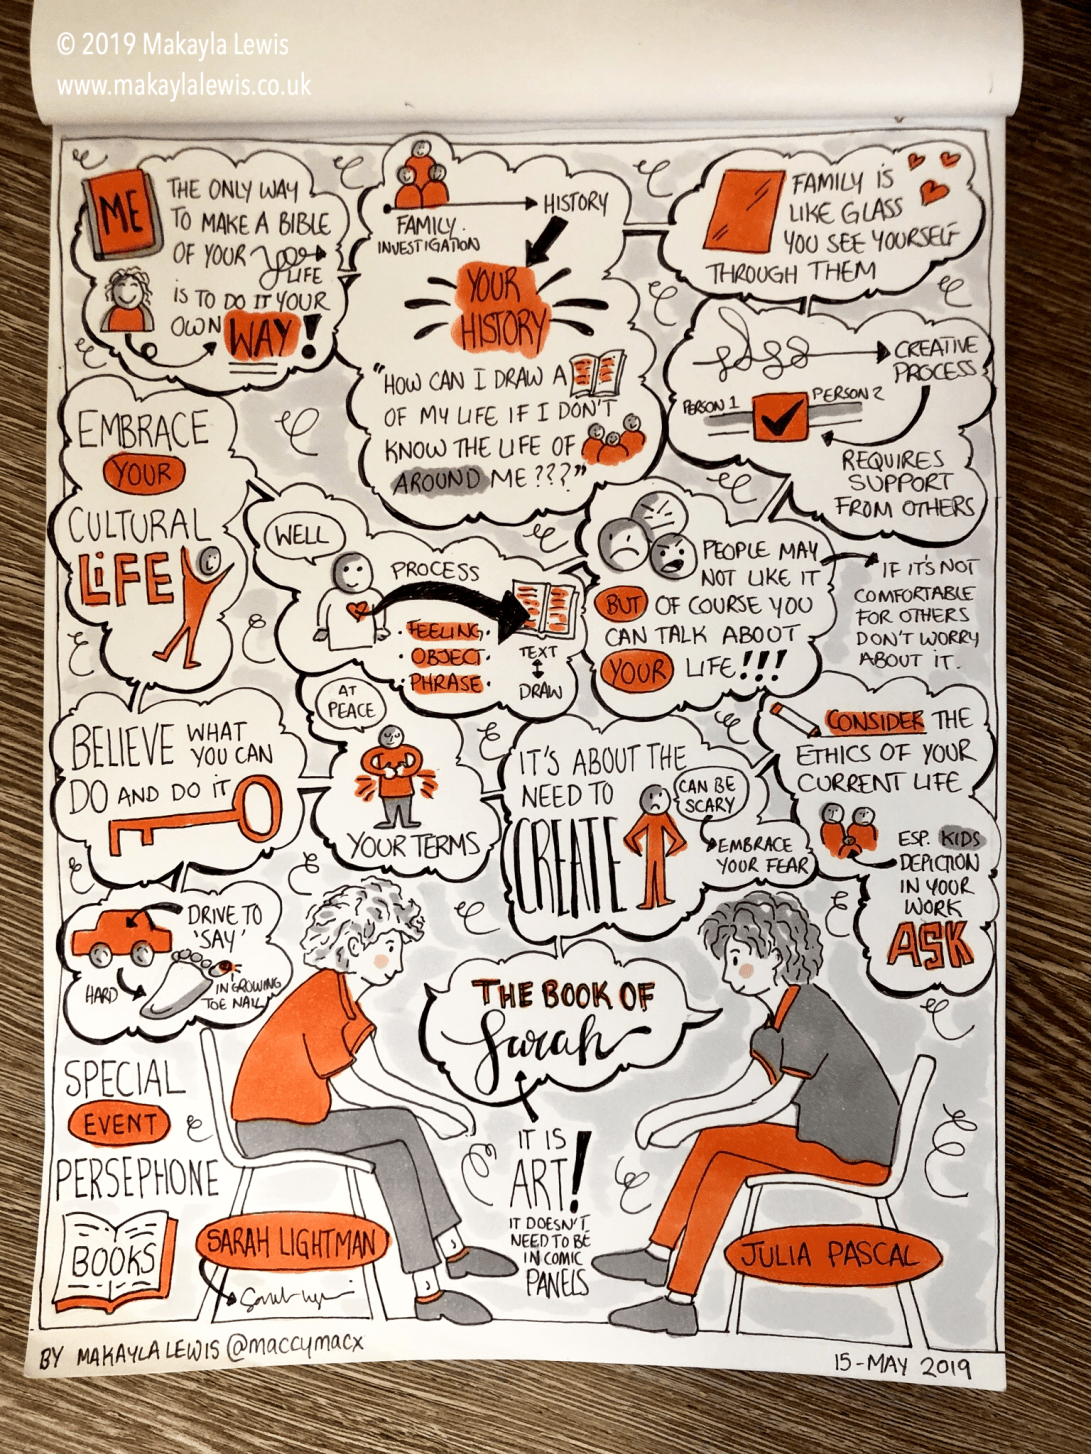 © 2019 Makayla Lewis
www.makaylalewis.co.uk
ME
THE ONLY WAY
TO MAKE A BIBLE
OF YOUR
LIFE
IS TO DO IT YOUR
OWN WAY!
FAMILY
INVESTIGATION
HISTORY
YOUR
HISTORY
"HOW CAN I DRAW A
OF MY LIFE IF I DON'T
KNOW THE LIFE OF
AROUND ME???"
FAMILY IS
LIKE GLASS
YOU SEE YOURSELF
THROUGH THEM
CREATIVE
PROCESS
PERSON 1
PERSON 2
REQUIRES
SUPPORT
FROM OTHERS
EMBRACE
YOUR
CULTURAL
LIFE
WELL
PROCESS
FEELING.
OBJECT.
PHRASE.
TEXT
DRAW
PEOPLE MAY
NOT LIKE IT
BUT OF COURSE YOU
CAN TALK ABOUT
YOUR LIFE!!!
IF IT'S NOT
COMFORTABLE
FOR OTHERS
DON'T WORRY
ABOUT IT.
BELIEVE WHAT
YOU CAN
DO AND DO IT
AT
PEACE
YOUR TERMS
IT'S ABOUT THE
NEED TO
CREATE
CAN BE
SCARY
EMBRACE
YOUR FEAR
CONSIDER THE
ETHICS OF YOUR
CURRENT LIFE
ESP. KIDS
DEPICTION
IN YOUR
WORK
ASK
DRIVE TO
'SAY'
HARD
IN GROWING
TOE NAIL
THE BOOK OF
Sarah
IT IS
ART!
IT DOESN'T
NEED TO BE
IN COMIC
PANELS
SPECIAL
EVENT
PERSEPHONE
BOOKS
SARAH LIGHTMAN
JULIA PASCAL
BY MAKAYLA LEWIS @maccymacx
15-MAY 2019